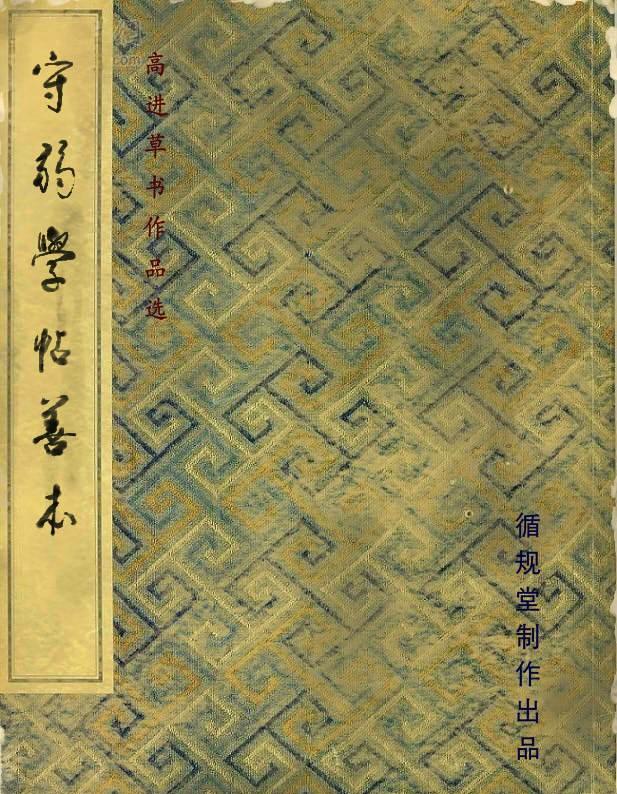 守弱學帖善本
高进草书作品选
循规堂制作出品
.com